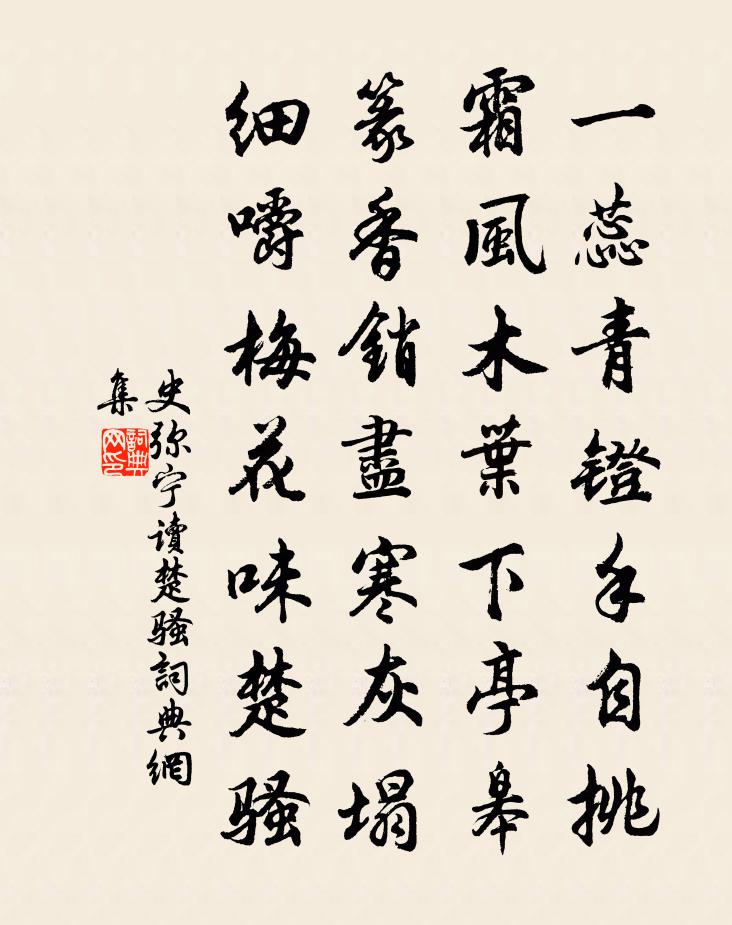 一蕊青鐙手自挑
霜風木葉下亭皋
篆香銷盡寒灰塌
細嚼梅花味楚騷
史弥宁读楚骚詞典網
集
詞典网印